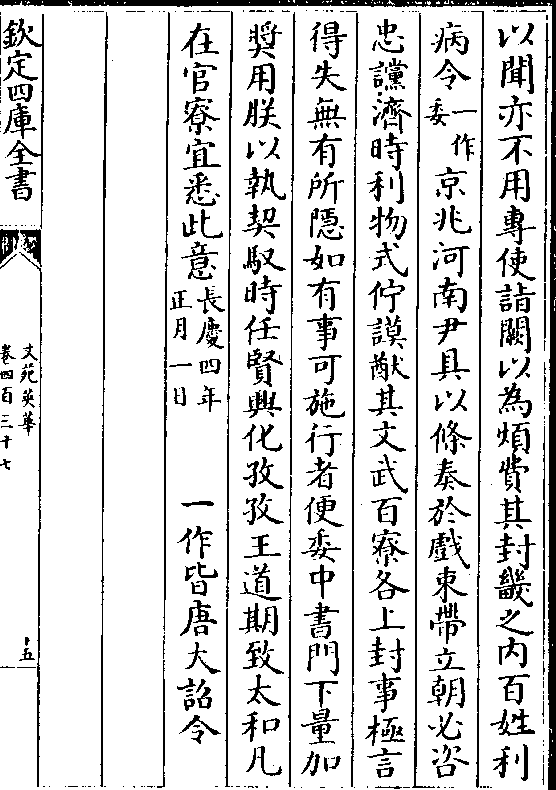 以聞亦不用專使詣闕以為煩費其封畿之内百姓利
病令一作委京兆河南尹具以條奏於戲束帶立朝必咨
忠讜濟時利物式佇謨猷其文武百寮各上封事極言
得失無有所隱如有事可施行者便委中書門下量加
奬用朕以執契馭時任賢興化孜孜王道期致太和凡
在官寮宜悉此意長慶四年正月一日 一作皆唐大詔令
欽定四庫全書
文苑英華
卷四百三十七
十五